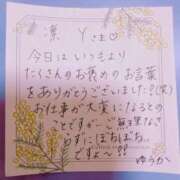 漢 Yさま♡
今日はいつもより
たくさんのお褒めのお言葉
をありがとうございました!(笑)
お仕事が大変になるとの
ことですが、ご無理なさ
らずにぼちぼち。
ですよ~!!
ゆうか